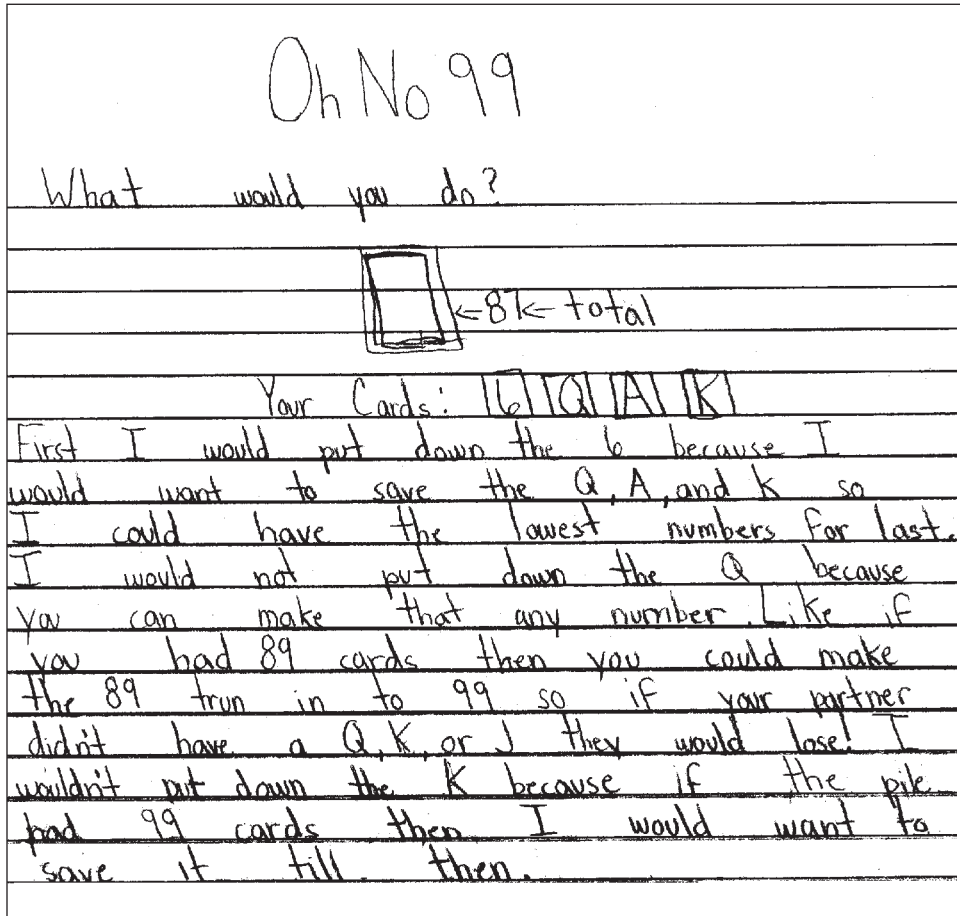 Oh No 99
What would you do?
←87← total
Your Cards: 6 Q A K
First I would put down the 6 because I
would want to save the Q, A, and K so
I could have the lowest numbers for last.
I would not put down the Q because
you can make that any number. Like if
you had 89 cards then you could make
the 89 trun in to 99 so if your partner
didn't have a Q, K, or J they would lose! I
wouldn't put down the K because if the pile
had 99 cards then I would want to
save it till then.